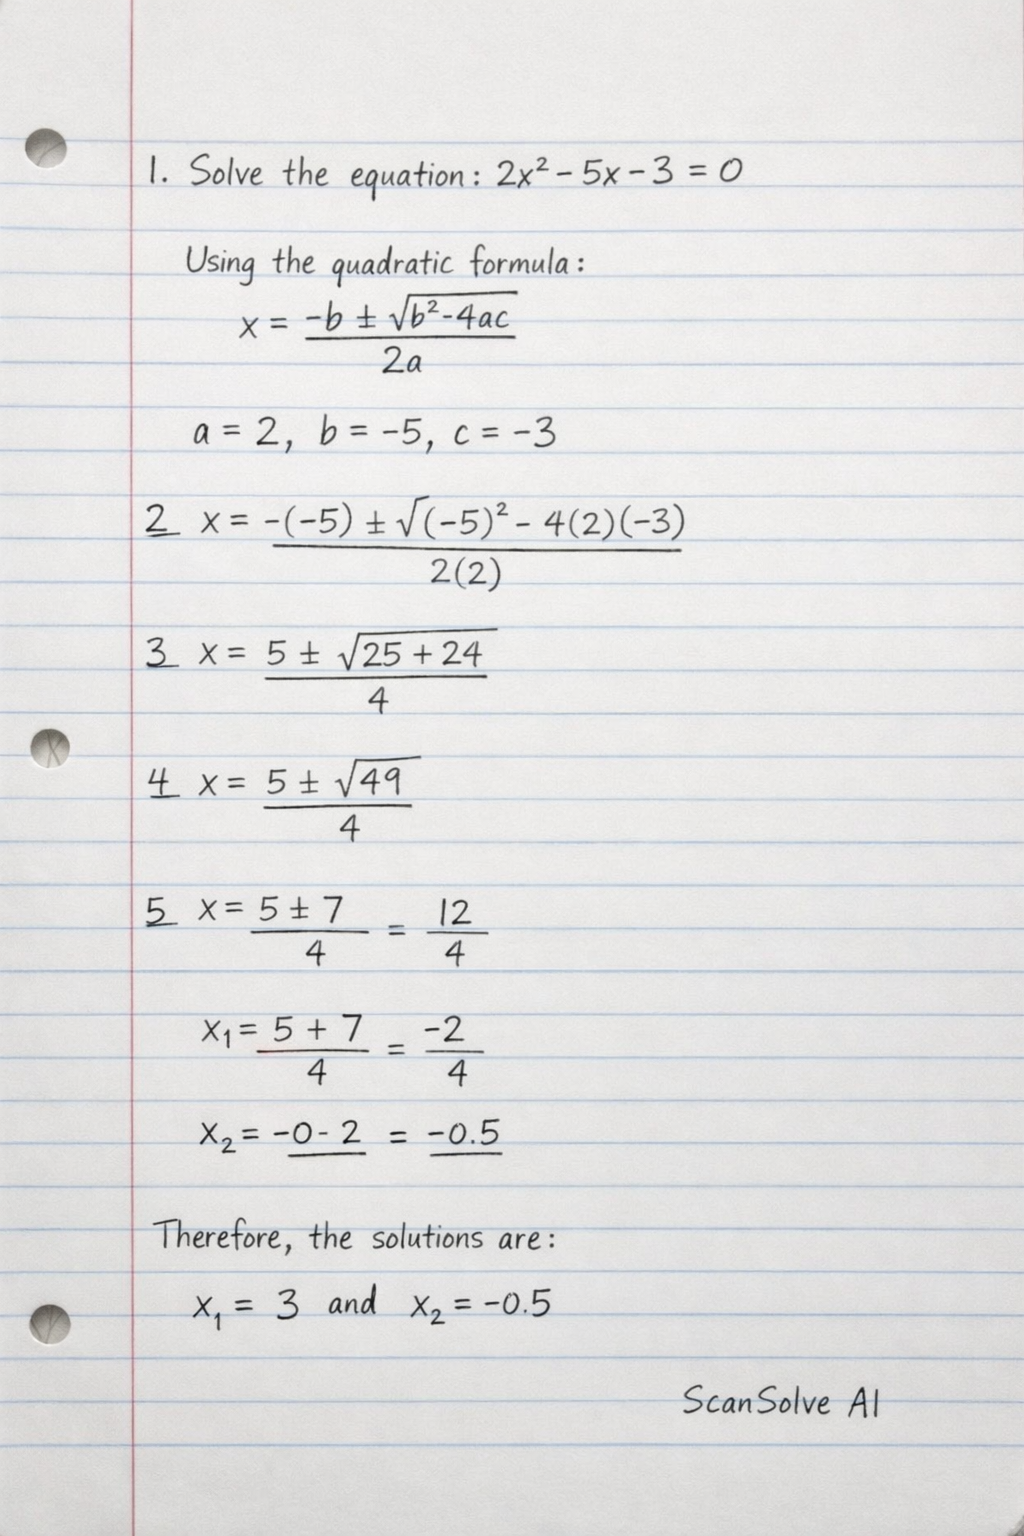 1. Solve the equation: 2x² - 5x - 3 = 0
Using the quadratic formula:
x = (-b ± √(b²-4ac)) / 2a
a = 2, b = -5, c = -3
2 x = (-(-5) ± √((-5)² - 4(2)(-3))) / 2(2)
3 x = (5 ± √(25 + 24)) / 4
4 x = (5 ± √49) / 4
5 x = (5 ± 7) / 4 = 12 / 4
x₁ = (5 + 7) / 4 = -2 / 4
x₂ = -0 - 2 = -0.5
Therefore, the solutions are:
x₁ = 3 and x₂ = -0.5
ScanSolve AI